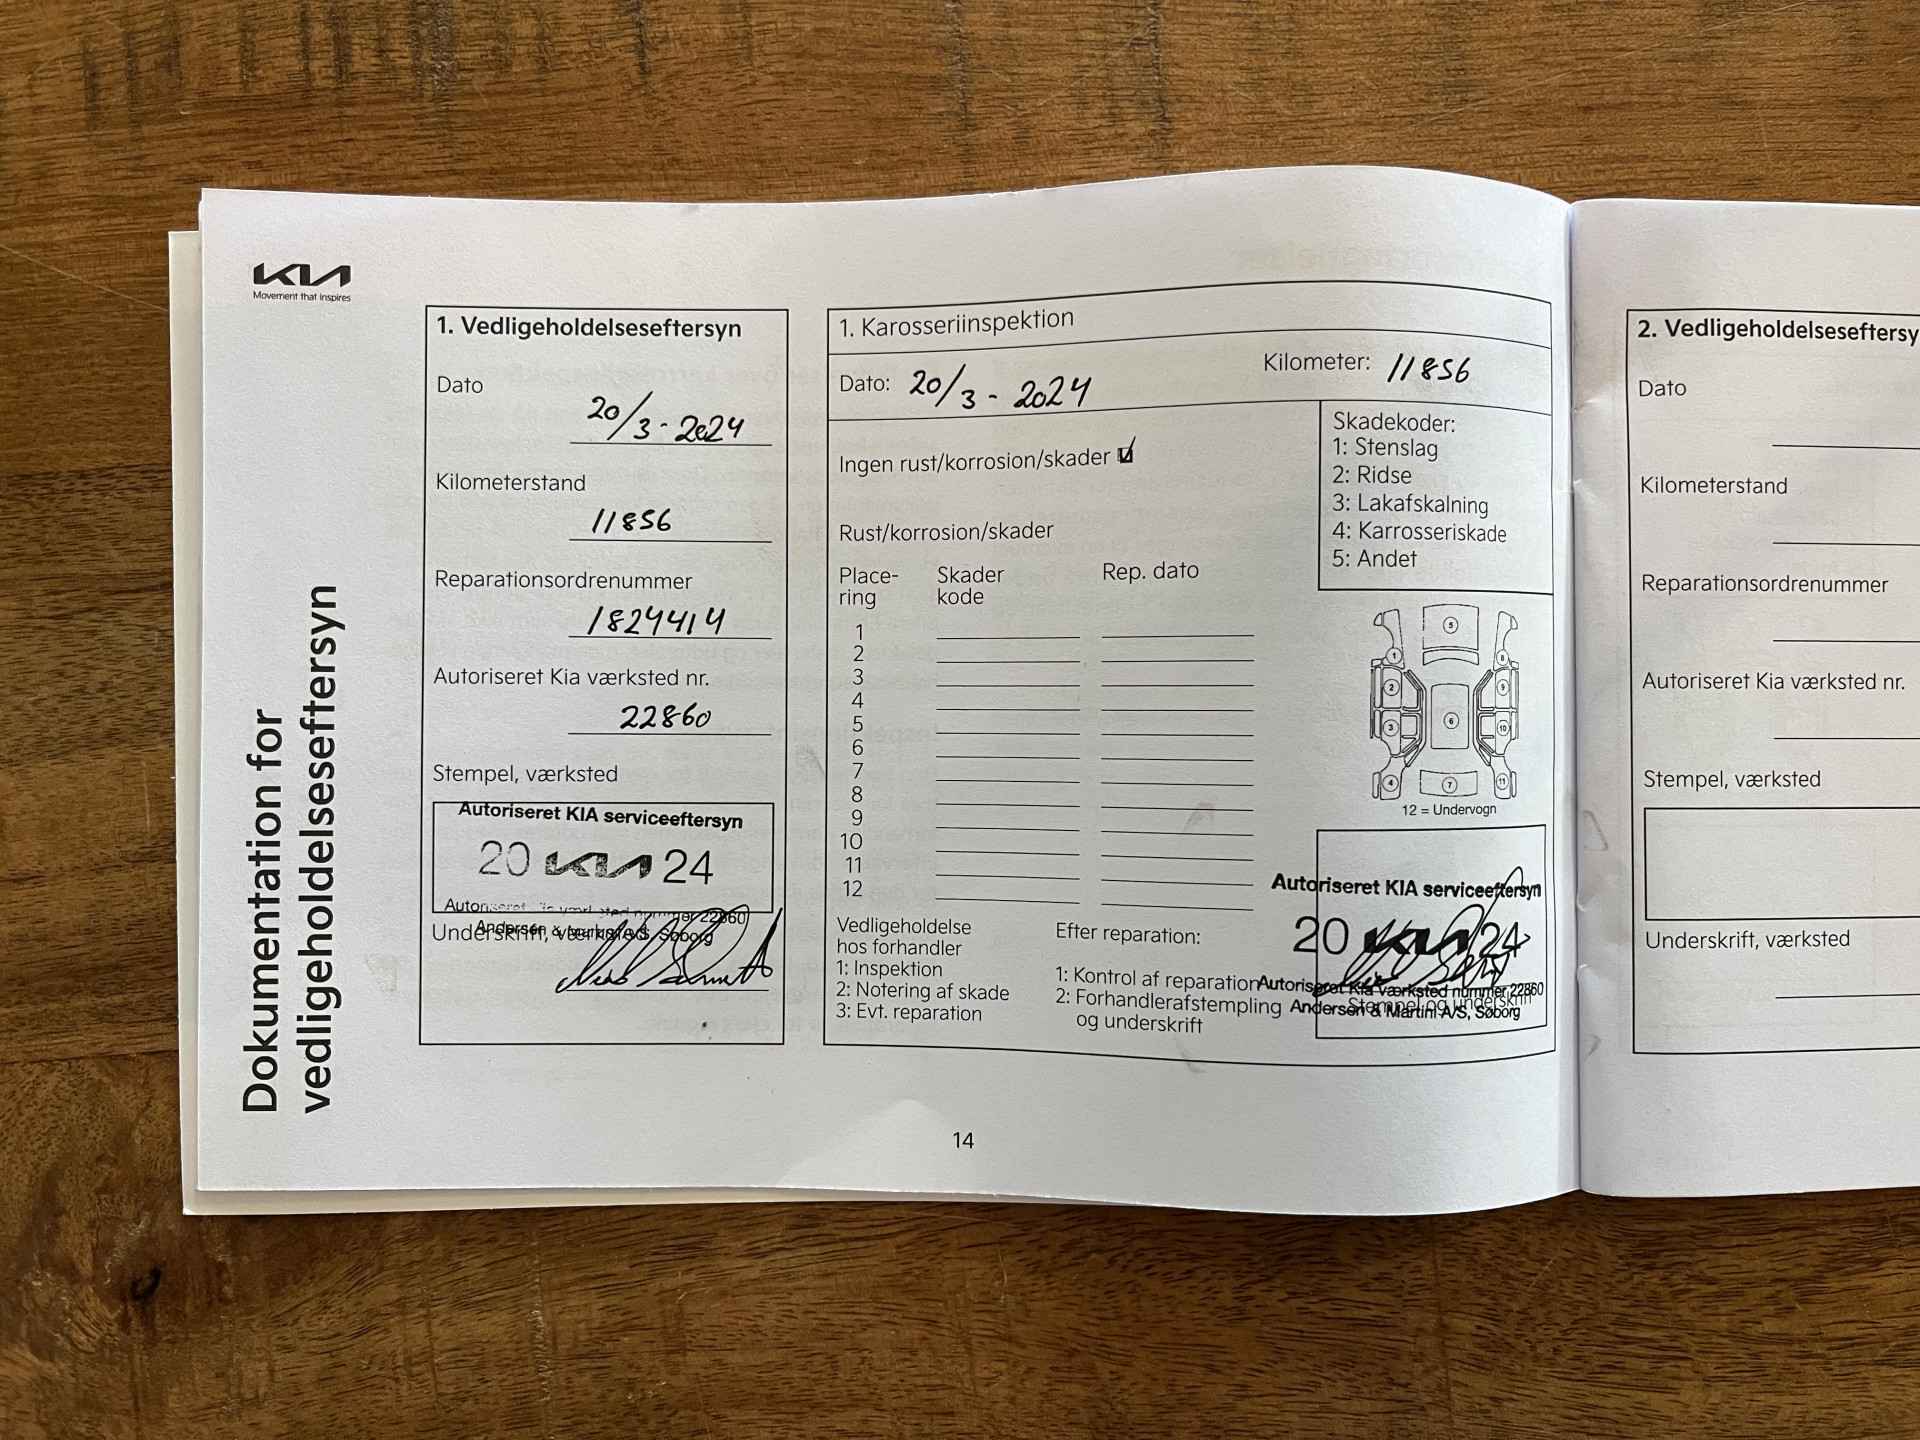 KIA
Movement that inspires
Dokumentation for
vedligeholdelseseftersyn
1. Vedligeholdelseseftersyn
Dato
20/3 - 2024
Kilometerstand
11856
Reparationsordrenummer
1824414
Autoriseret Kia værksted nr.
22860
Stempel, værksted
Autoriseret KIA serviceeftersyn
20 KIA 24
Autoriseret Kia værksted nummer 22860
Andersen & Martini A/S, Søborg
Underskrift, værksted
1. Karosseriinspektion
Dato: 20/3 - 2024
Kilometer: 11856
Ingen rust/korrosion/skader
Skadekoder:
1: Stenslag
2: Ridse
3: Lakafskalning
4: Karrosseriskade
5: Andet
Rust/korrosion/skader
Place-
ring
Skader
kode
Rep. dato
1
2
3
4
5
6
7
8
9
10
11
12
5
1
8
2
9
6
3
10
4
7
11
12 = Undervogn
Vedligeholdelse
hos forhandler
1: Inspektion
2: Notering af skade
3: Evt. reparation
Efter reparation:
1: Kontrol af reparation
2: Forhandlerafstempling
og underskrift
Autoriseret KIA serviceeftersyn
20 KIA 24
Autoriseret Kia værksted nummer 22860
Andersen & Martini A/S, Søborg
Stempel og underskrift
14
2. Vedligeholdelseseftersy
Dato
Kilometerstand
Reparationsordrenummer
Autoriseret Kia værksted nr.
Stempel, værksted
Underskrift, værksted